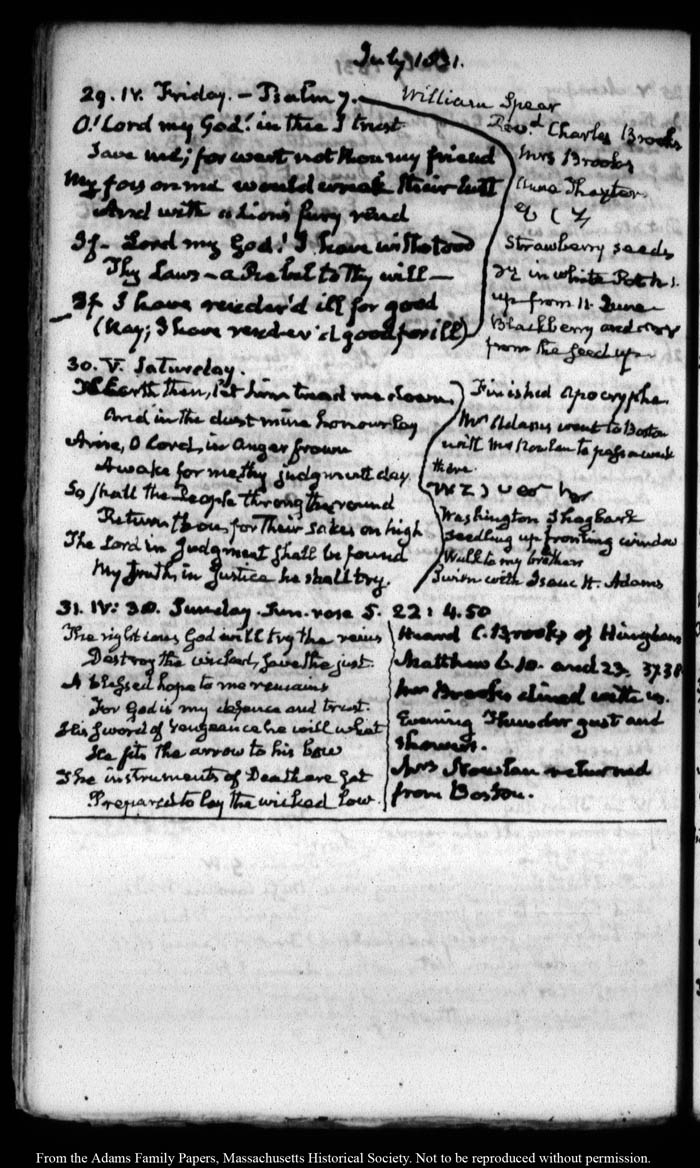 July 1831.
29. IV. Friday. — Psalm 7.
O! Lord my God! in thee I trust
Save me; for wert not thou my friend
My foes on me would wreak their lust
And with a lion's fury rend
If — Lord my God! I have withstood
Thy Laws — a Rebel to thy will —
If I have render'd ill for good
(Nay; I have render'd good for ill)
William Spear
Revd. Charles Brooks
Mrs Brooks
Anna Thaxter
Strawberry seeds
in white Pot N. 1.
up from 11 June
Blackberry and
from the seed up
30. V. Saturday.
To Earth then, let him tread me down,
And in the dust mine honour lay
Arise, O Lord, in anger frown
Awake for me thy judgment day
So shall the People throng thee round
Return thou, for their sakes on high
The Lord in Judgment shall be found
My Truth, in Justice he shall try.
Finished Apocrypha.
Mrs Adams went to Boston
with Mrs Nowlan to pass a week
there.
Washington Shagbark
seedling up fronting window
Walk to my brothers
Swim with Isaac H. Adams
31. IV: 30. Sunday. Sun rose 5. 22: 4.50
The righteous God will try the reins
Destroy the wicked, save the just.
A blessed hope to me remains
For God is my defence and trust.
His sword of vengeance he will whet
He fits the arrow to his bow
The instruments of Death are set
Prepared to lay the wicked low.
Heard C. Brooks of Hingham
Matthew 6. 10. and 23. 37.38
Mr Brooks dined with us.
Evening Thunder gust and
showers.
Mrs Nowlan returned
from Boston.
From the Adams Family Papers, Massachusetts Historical Society. Not to be reproduced without permission.